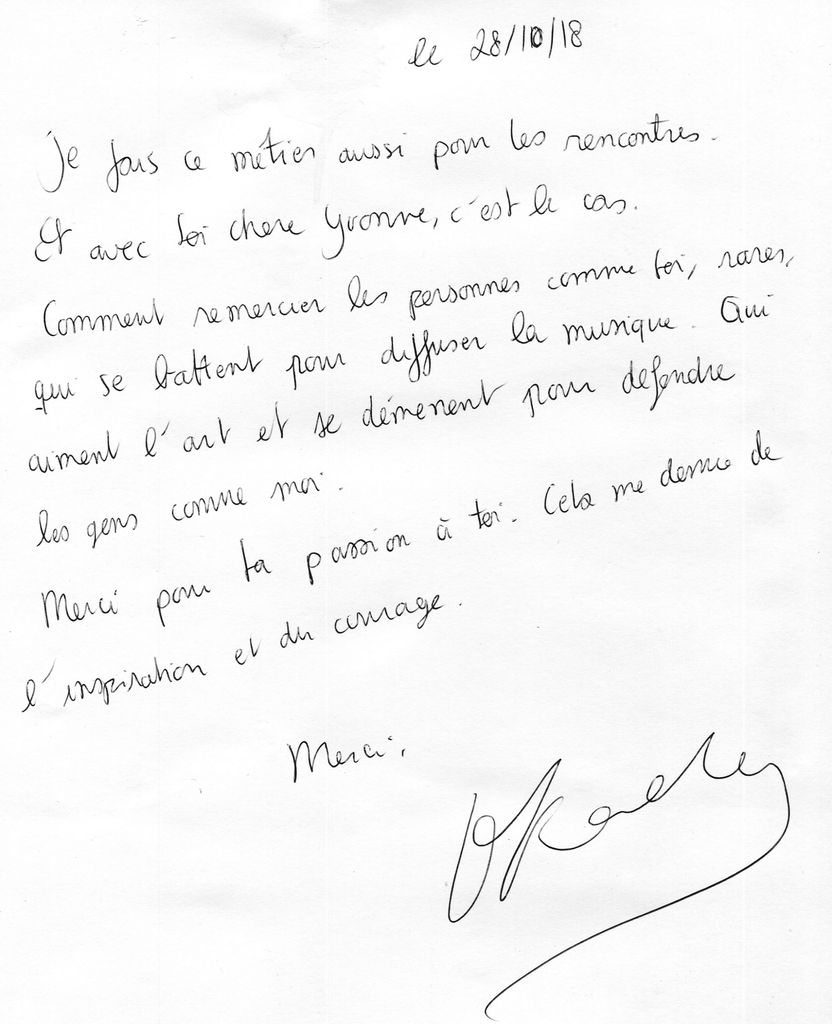 le 28/10/18
Je fais ce métier aussi pour les rencontres.
Et avec toi chere Yvonne, c'est le cas.
Comment remercier les personnes comme toi, rares,
qui se battent pour diffuser la musique. Qui
aiment l'art et se démènent pour défendre
les gens comme moi.
Merci pour ta passion à toi. Cela me donne de
l'inspiration et du courage.
Merci,